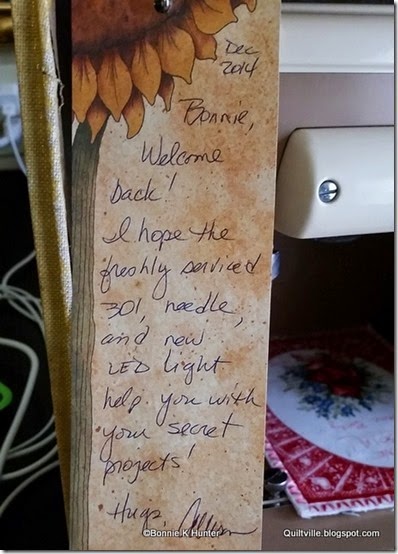 Dec
2014
Bonnie,
Welcome
back!
I hope the
freshly serviced
301, needle,
and new
LED light
help you with
your secret
projects!
Hugs, Allison
©Bonnie K Hunter
Quiltville.blogspot.com